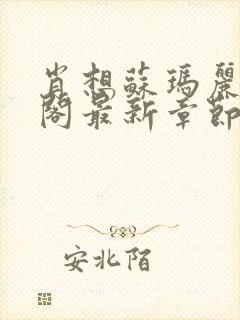 肖想蘇瑪麗
閣最新章節
安北陌